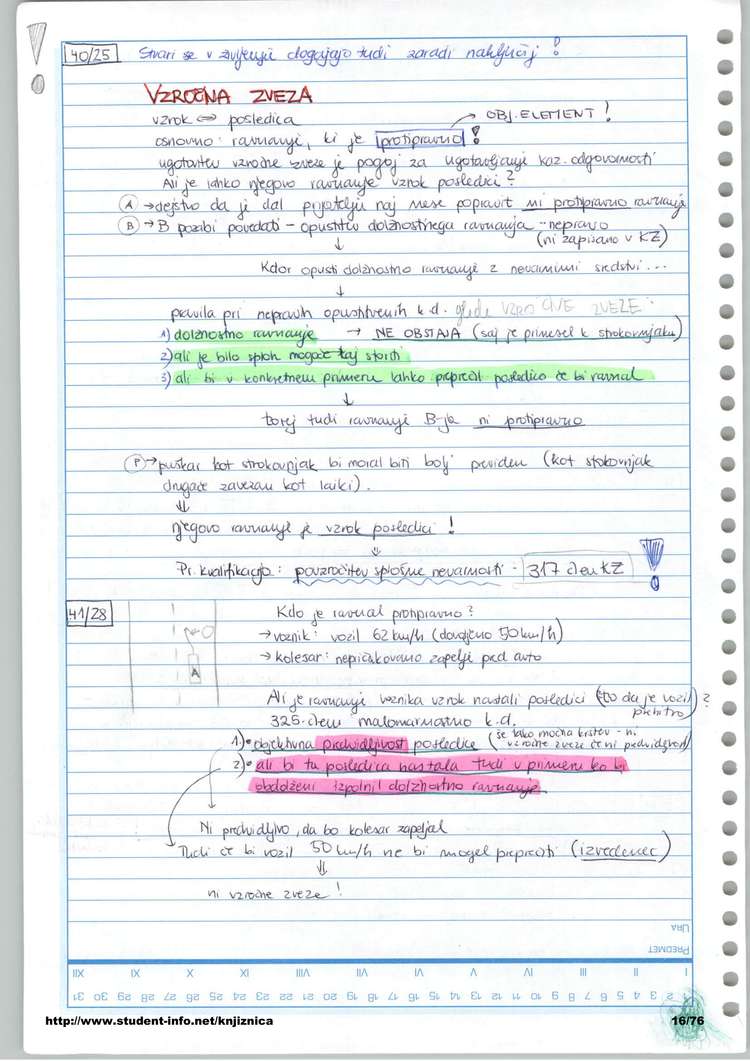 40/25 Stvari se v življenju dogajajo tudi zaradi naključij!
VZROČNA ZVEZA
vzrok ⇔ posledica → OBJ. ELEMENT!
osnovno: ravnanje, ki je protipravno!
ugotovitev vzročne zveze je pogoj za ugotavljanje kaz. odgovornosti
Ali je lahko njegovo ravnanje vzrok posledici?
A → dejstvo da je dal prijatelju naj nese popravit ni protipravno ravnanje
B → B pozabi povedati – opustitev dolžnostnega ravnanja – nepravo
(ni zapisano v KZ)
↓
Kdor opusti dolžnostno ravnanje z nevarnimi sredstvi...
↓
pravila pri nepravih opustitvenih k.d. glede VZROČNE ZVEZE:
1) dolžnostno ravnanje → NE OBSTAJA (saj je prinesel k strokovnjaku)
2) ali je bilo sploh mogoče kaj storiti
3) ali bi v konkretnem primeru lahko preprečil posledico če bi ravnal
↓
torej tudi ravnanje B-ja ni protipravno
P → puškar kot strokovnjak bi moral biti bolj previden (kot stokovnjak
drugače zavezan kot laiki).
⇓
njegovo ravnanje je vzrok posledici!
⇓
Pr. kvalifikacija: povzročitev splošne nevarnosti – 317 člen KZ!
41/28 Kdo je ravnal protipravno?
→ voznik: vozil 62 km/h (dovoljeno 50 km/h)
→ kolesar: nepričakovano zapelje pred avto
A
Ali je ravnanje voznika vzrok nastali posledici (to da je vozil prehitro)?
325. člen malomarnostno k.d.
1) • objektivna predvidljivost posledice (še tako močna krstev – ni
vzročne zveze če ni predvidljivosti)
2) • ali bi ta posledica nastala tudi v primeru ko bi
obdolženi izpolnil dolžnostno ravnanje
Ni predvidljivo, da bo kolesar zapeljal
Tudi če bi vozil 50 km/h ne bi mogel preprečiti (izvedenec)
⇓
ni vzročne zveze!
URA
PREDMET
I II III IV V VI VII VIII IX X XI XII
1 2 3 4 5 6 7 8 9 10 11 12 13 14 15 16 17 18 19 20 21 22 23 24 25 26 27 28 29 30 31
http://www.student-info.net/knjiznica 16/76